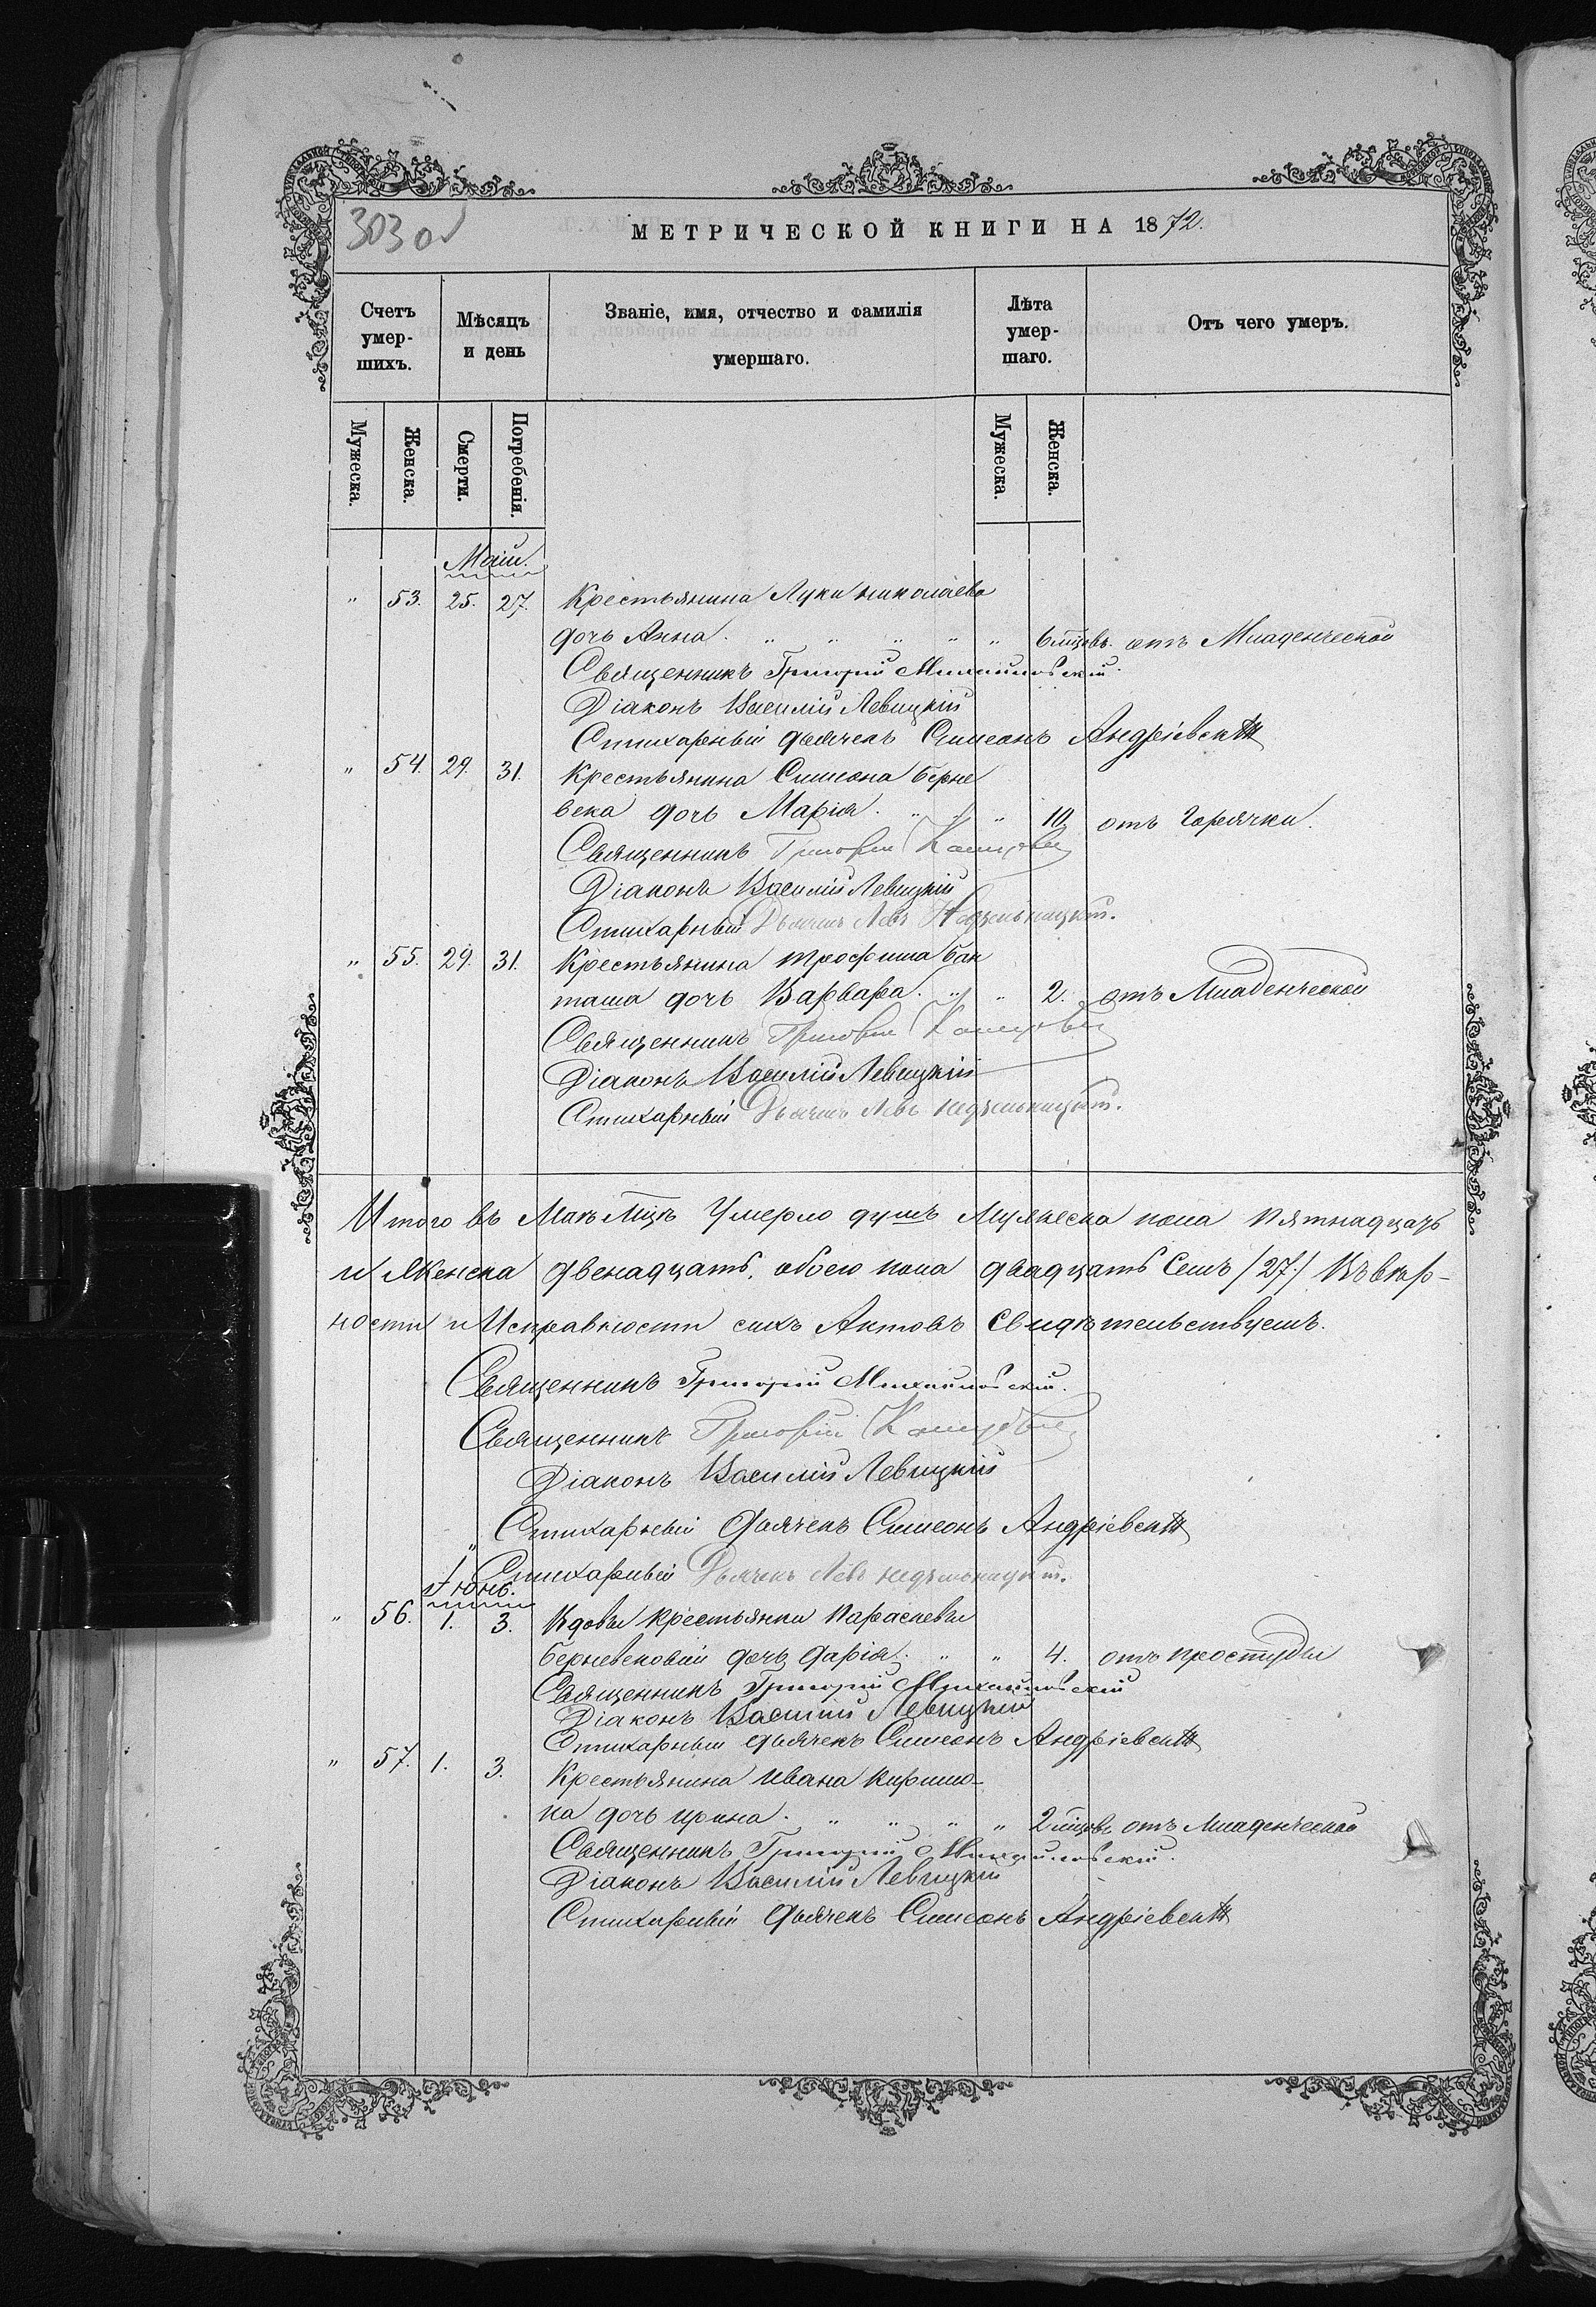 303 об
МЕТРИЧЕСКОЙ КНИГИ НА 1872.
Счетъ умершихъ.
Мѣсяцъ и день
Званіе, имя, отчество и фамилія умершаго.
Лѣта умершаго.
Отъ чего умеръ.
Мужеска.
Женска.
Смерти.
Погребенія.
Мужеска.
Женска.
Маій.
" 53. 25. 27. Крестьянина Луки Николаева
дочь Анна. " " " " " 6 мцовъ. отъ Младенческой
Священникъ Григорій Михайловскій.
Діаконъ Василій Левицкій
Стихарный дьячекъ Симеонъ Андріевскій
" 54. 29. 31. Крестьянина Симеона Берне
века дочь Марія. " " " 10. отъ Горячки.
Священникъ Григорій
Діаконъ Василій Левицкій
Стихарный Дьячекъ Левъ Недѣльницкій.
" 55. 29. 31. Крестьянина Трофима Бан
таша дочь Варвара. " " 2. отъ Младенческой
Священникъ Григорій
Діаконъ Василій Левицкій
Стихарный Дьячекъ Левъ Недѣльницкій.
Итого въ Маѣ Мцѣ Умерло душъ Мужеска пола пятнадцать
и Женска двенадцать, обоего пола двадцать Семь /27/ Въ вѣр-
ности и Исправности сихъ Актовъ Свидѣтельствуемъ.
Священникъ Григорій Михайловскій.
Священникъ Григорій
Діаконъ Василій Левицкій
Стихарный Дьячекъ Симеонъ Андріевскій
" Стихарный Дьячекъ Левъ Недѣльницкій.
Іюнь.
" 56. 1. 3. Вдовы крестьянки Параскевы
Берневековой дочь Дарія. " " 4. отъ простуды
Священникъ Григорій Михайловскій
Діаконъ Василій Левицкій
Стихарный дьячекъ Симеонъ Андріевскій
" 57. 1. 3. Крестьянина Ивана Кирило-
ка дочь Ирина. " " " " 2 мцовъ отъ Младенческой
Священникъ Григорій Михайловскій.
Діаконъ Василій Левицкій
Стихарный Дьячекъ Симеонъ Андріевскій